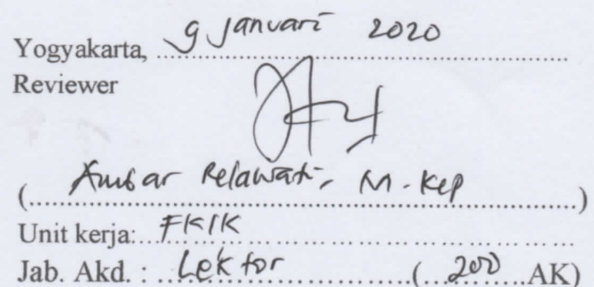 Yogyakarta, 9 Januari 2020
Reviewer
(Ambar Relawati, M.Kep)
Unit kerja: FKIK
Jab. Akd. : Lektor (200 AK)